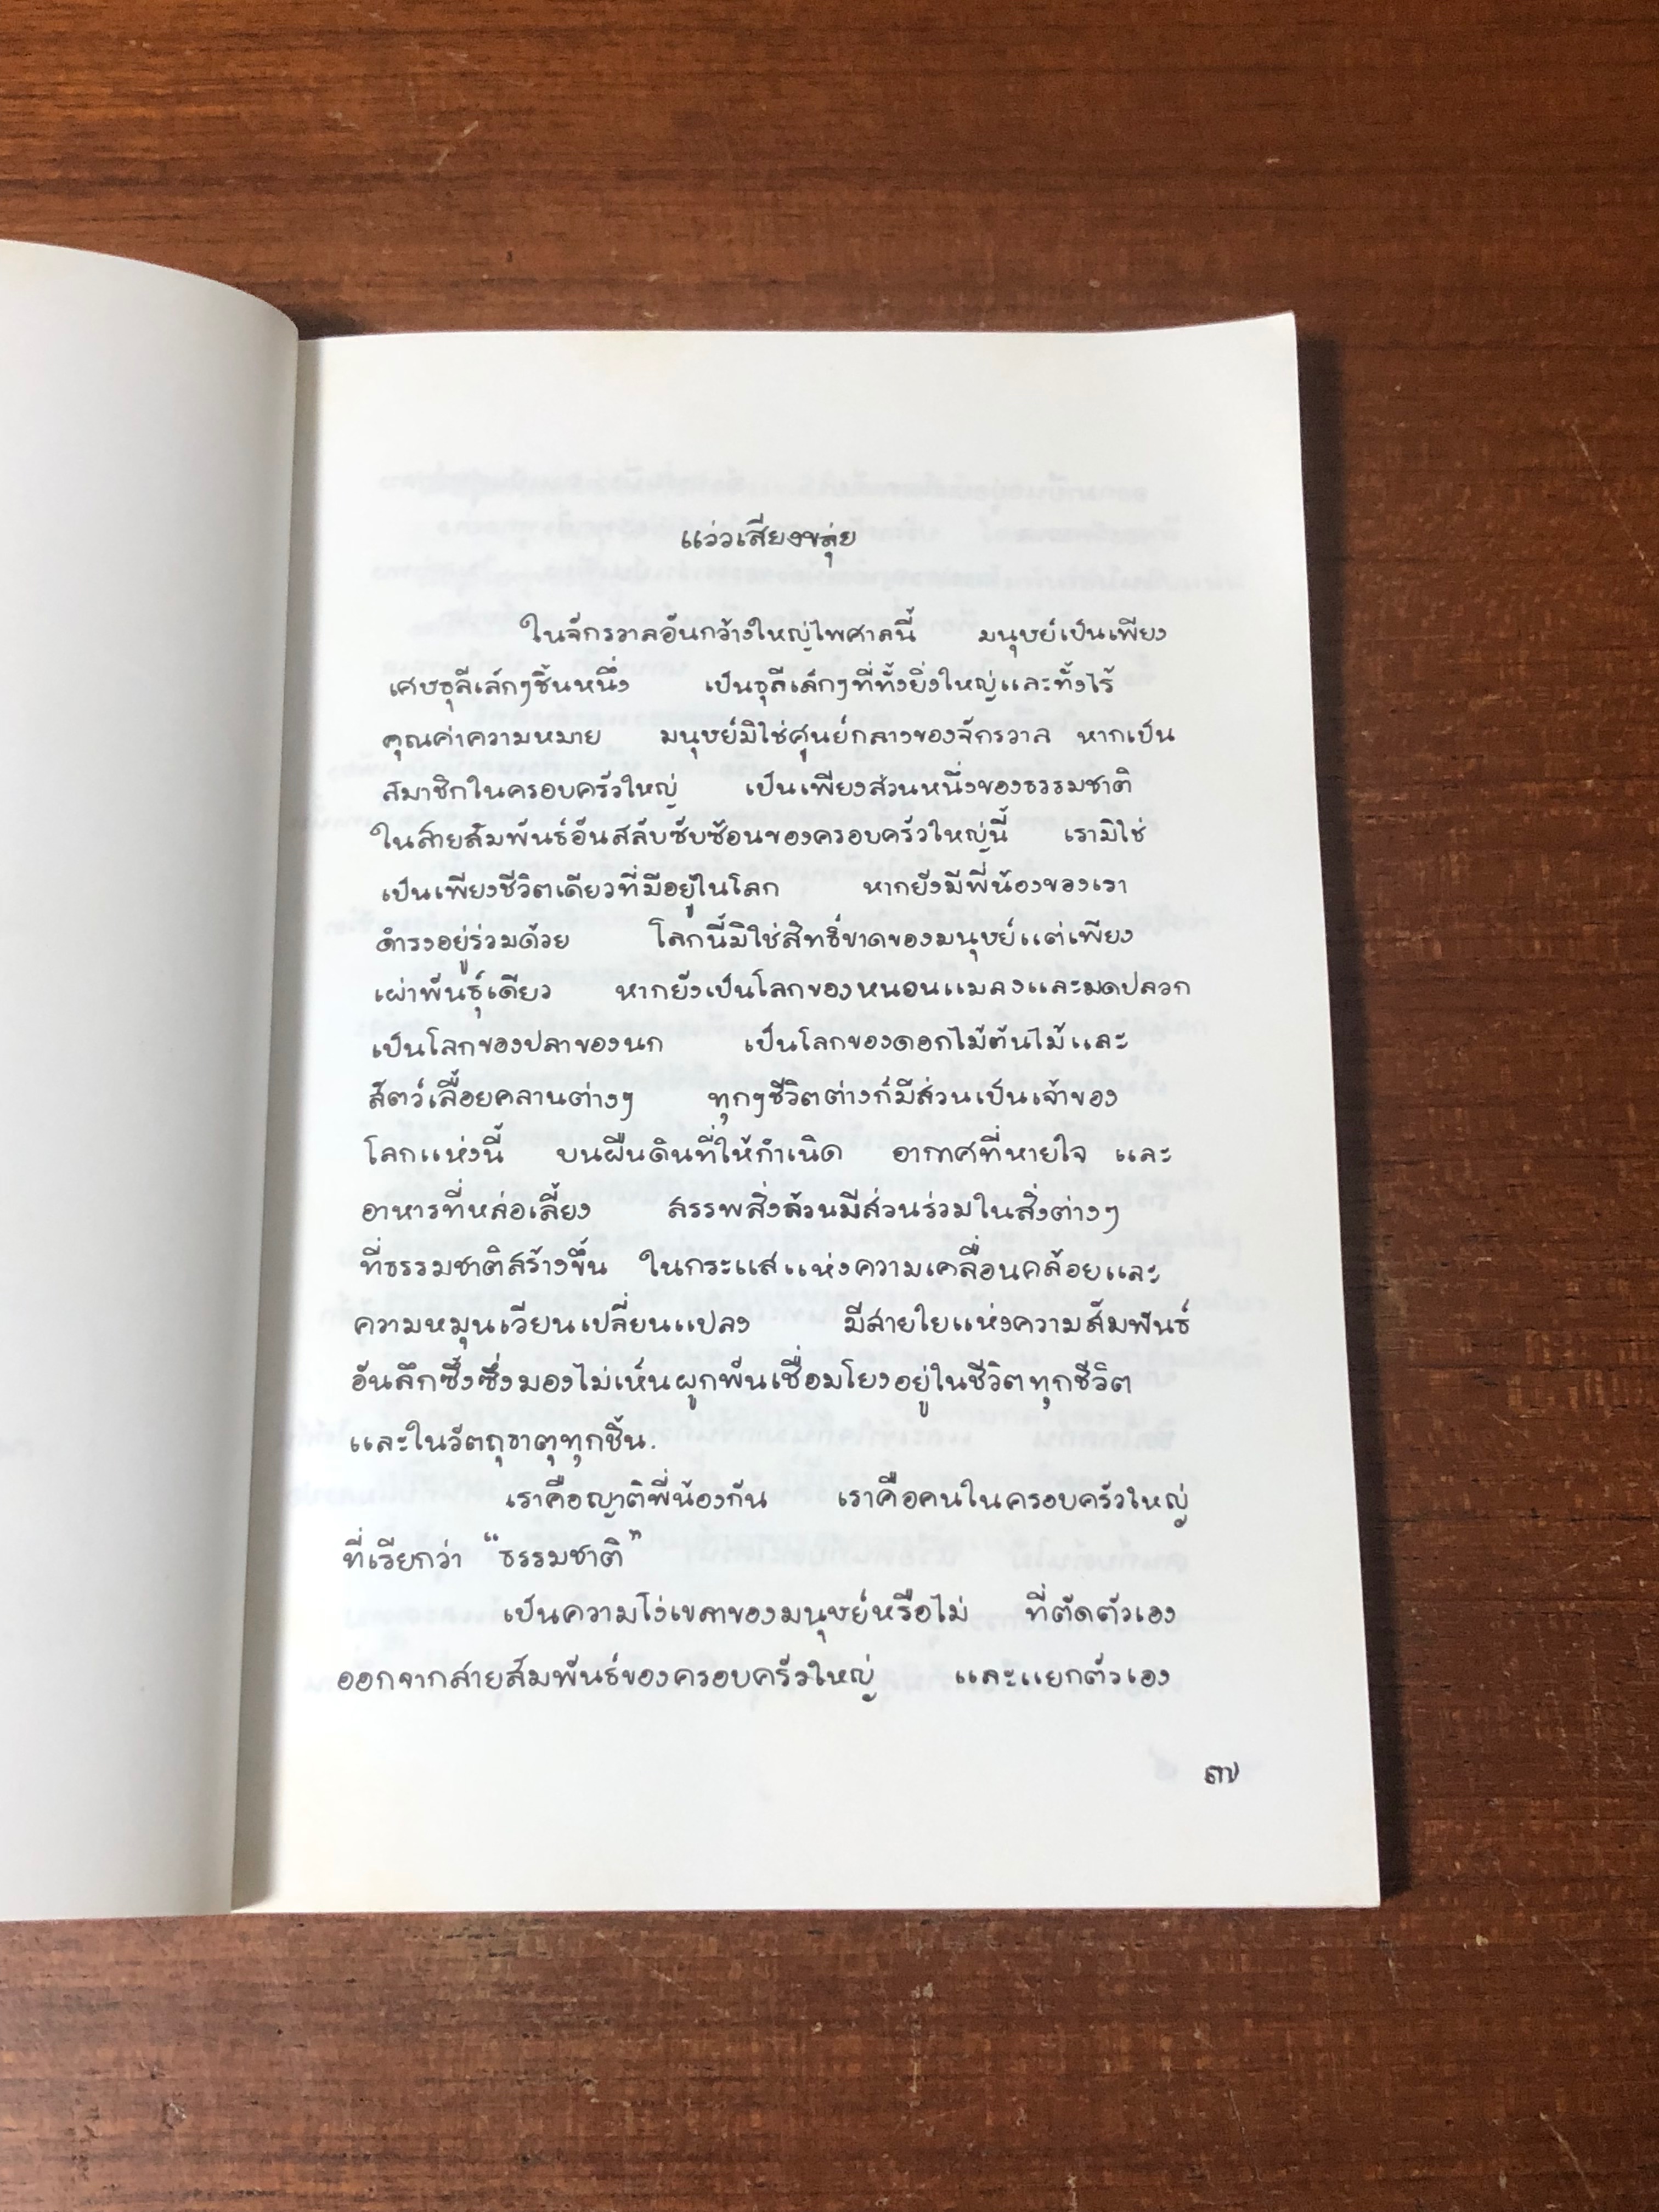 แว่วเสียงขลุ่ย
ในจักรวาลอันกว้างใหญ่ไพศาลนี้ มนุษย์เป็นเพียง
เศษธุลีเล็กๆชิ้นหนึ่ง เป็นธุลีเล็กๆที่ทั้งยิ่งใหญ่และทั้งไร้
คุณค่าความหมาย มนุษย์มิใช่ศูนย์กลางของจักรวาล หากเป็น
สมาชิกในครอบครัวใหญ่ เป็นเพียงส่วนหนึ่งของธรรมชาติ
ในสายสัมพันธ์อันสลับซับซ้อนของครอบครัวใหญ่นี้ เรามิใช่
เป็นเพียงชีวิตเดียวที่มีอยู่ในโลก หากยังมีพี่น้องของเรา
ดำรงอยู่ร่วมด้วย โลกนี้มิใช่สิทธิ์ขาดของมนุษย์แต่เพียง
เผ่าพันธุ์เดียว หากยังเป็นโลกของหนอนแมลงและมดปลวก
เป็นโลกของปลาของนก เป็นโลกของดอกไม้ต้นไม้และ
สัตว์เลื้อยคลานต่างๆ ทุกๆชีวิตต่างก็มีส่วนเป็นเจ้าของ
โลกแห่งนี้ บนผืนดินที่ให้กำเนิด อากาศที่หายใจ และ
อาหารที่หล่อเลี้ยง สรรพสิ่งล้วนมีส่วนร่วมในสิ่งต่างๆ
ที่ธรรมชาติสร้างขึ้น ในกระแสแห่งความเคลื่อนคล้อยและ
ความหมุนเวียนเปลี่ยนแปลง มีสายใยแห่งความสัมพันธ์
อันลึกซึ้งซึ่งมองไม่เห็นผูกพันเชื่อมโยงอยู่ในชีวิตทุกชีวิต
และในวัตถุธาตุทุกชิ้น.
เราคือญาติพี่น้องกัน เราคือคนในครอบครัวใหญ่
ที่เรียกว่า “ธรรมชาติ”
เป็นความโง่เขลาของมนุษย์หรือไม่ ที่ตัดตัวเอง
ออกจากสายสัมพันธ์ของครอบครัวใหญ่ และแยกตัวเอง
๗